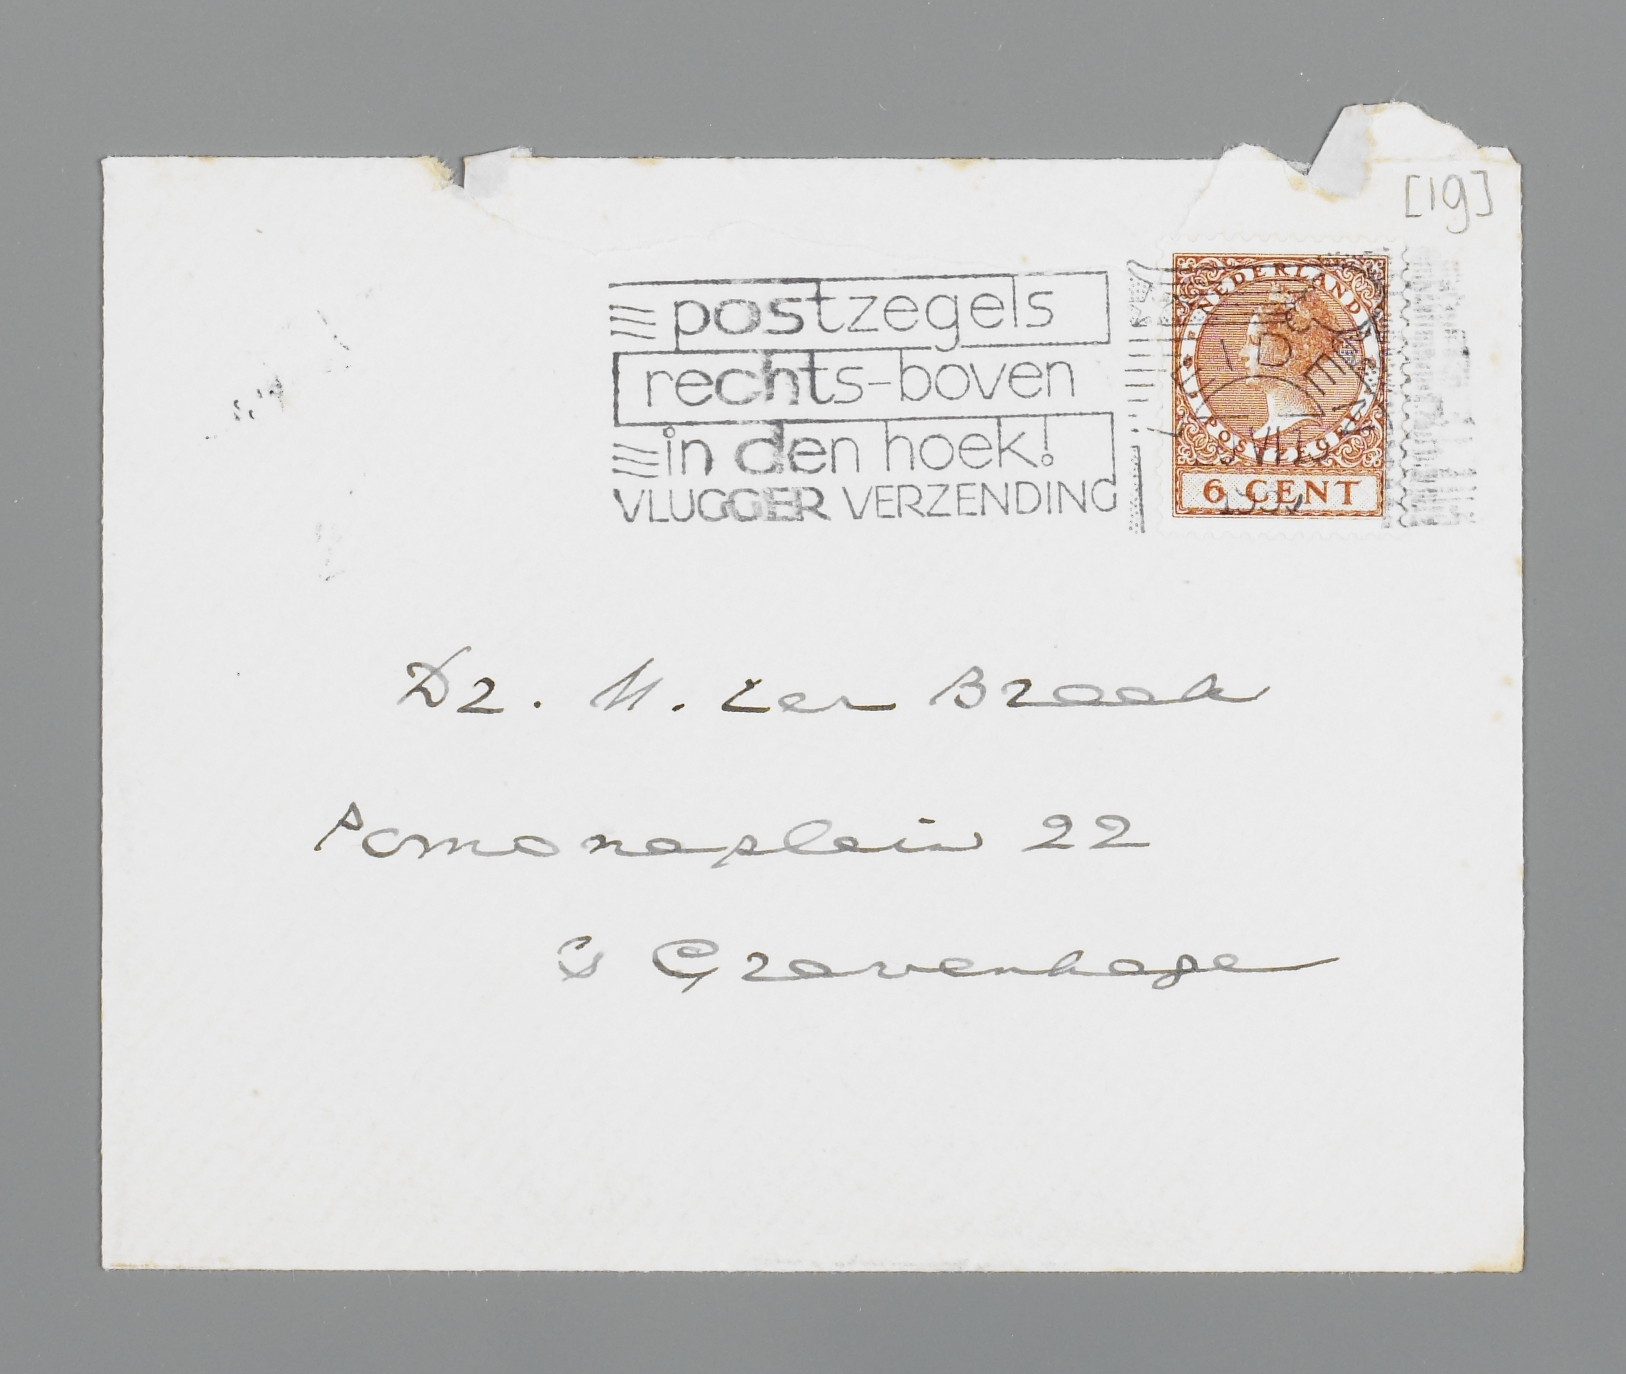 [19]
postzegels
rechts-boven
in den hoek!
VLUGGER VERZENDING
NEDERLAND
6 CENT
Dr. M. ter Braak
Pomonaplein 22
's Gravenhage